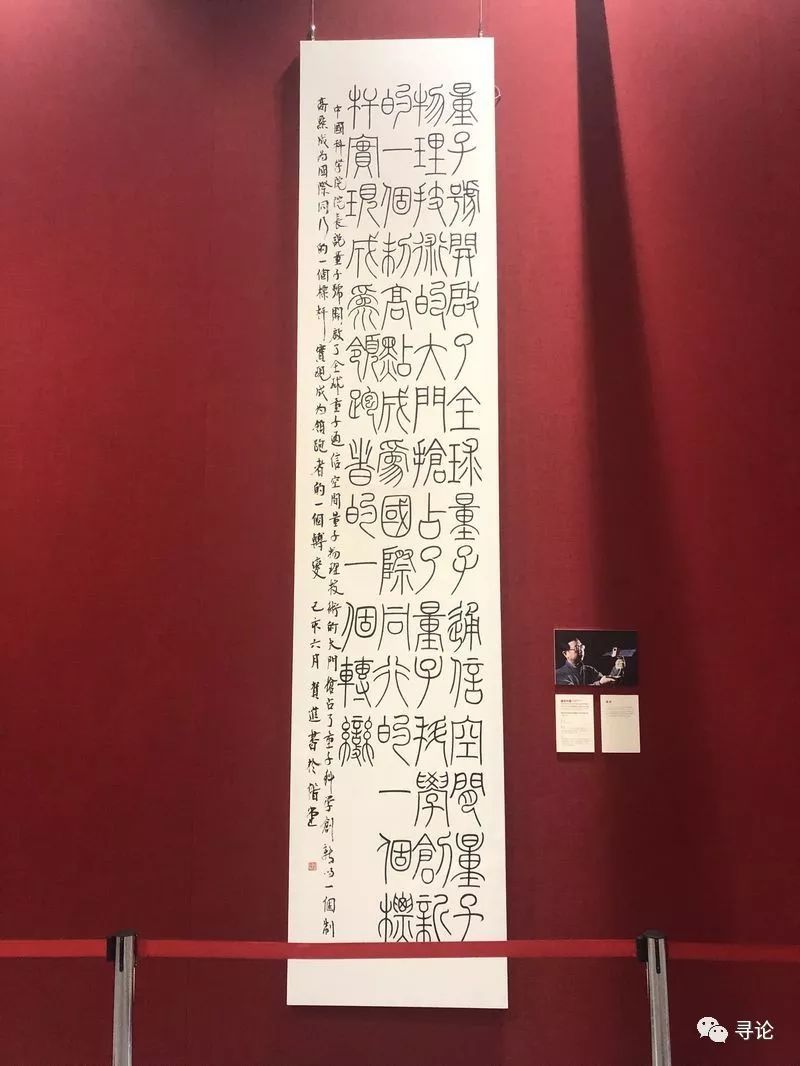 量子號開啟了全球量子通信空間量子
物理技術的大門搶占了量子科學創新
的一個制高點成爲國際同行的一個標
杆實現成爲領跑者的一個轉變
中國科学院院長説量子號開啟了全球量子通信空間量子物理技術的大門搶占了量子科学創新的一個制
高點成为國際同行的一個標杆實現成为領跑者的一個轉變 己亥六月 書於
寻论